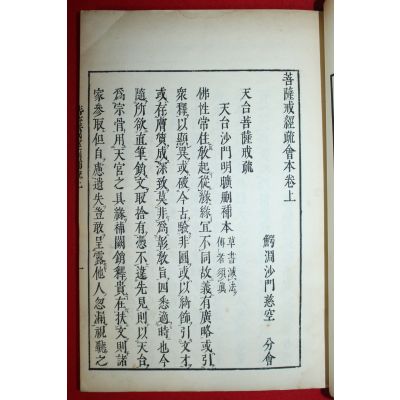 菩薩戒經疏會本卷上
鰐淵沙門慈空 分會
天台菩薩戒疏
天台沙門明曠刪補本 草書減法傳者須眞
佛性常住教起從緣緣宜不同故義有廣略或引
衆釋以顯異或破今古驗非圓或以綺飾引文才
或在膚質成深致莫非爲彰教旨四悉適時也今
隨所欲直筆銷文取捨有憑不違先見則以天台
爲宗骨用天宮之具緣補闕銷釋貴在扶文則諸
家參取但自慮遺失豈敢呈露他人忽漏視聽之